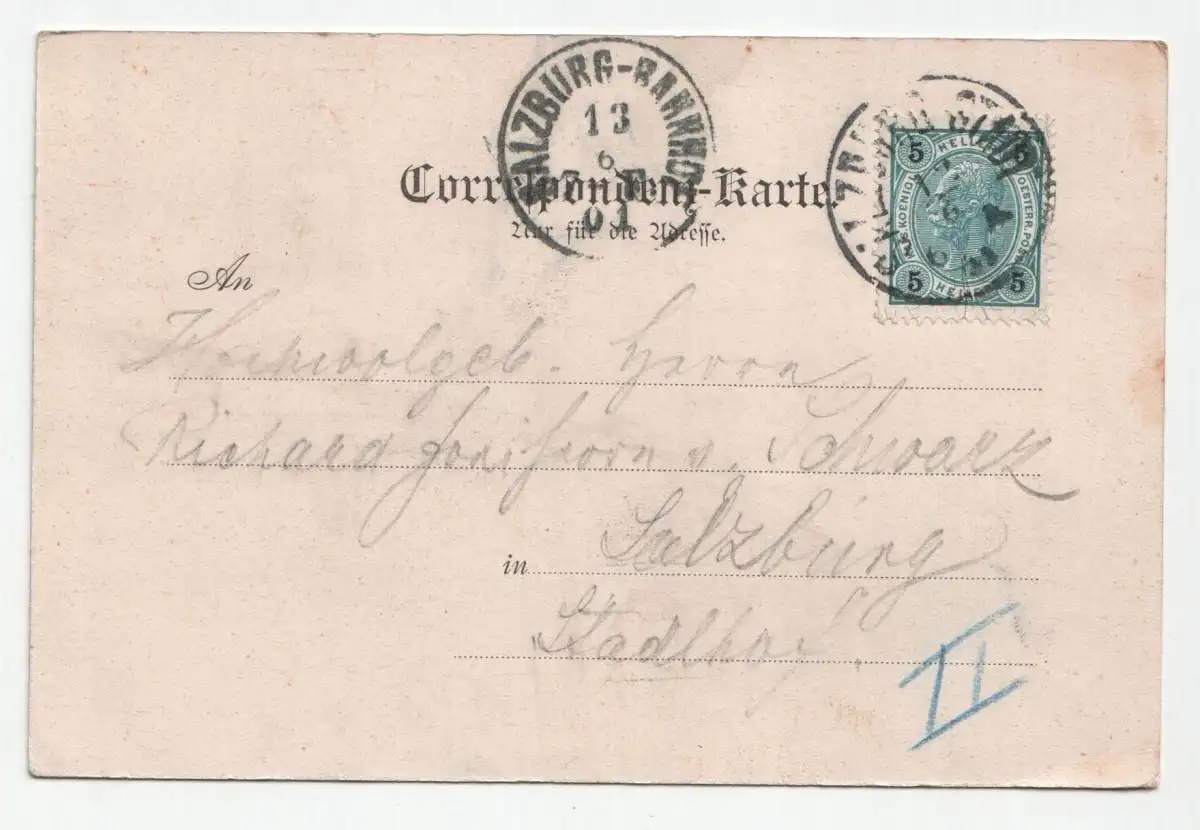 SALZBURG-BAHNHOF
13
6
01
Correspondenz-Karte.
Nur für die Adresse.
5 HELLER 5
KAIS. KOENIGL. OESTERR. POST
5 HELLER 5
An
Hochwolgeb. Herrn
Richard Freiherrn v. Schwarz
in Salzburg
Stadlhof.
II